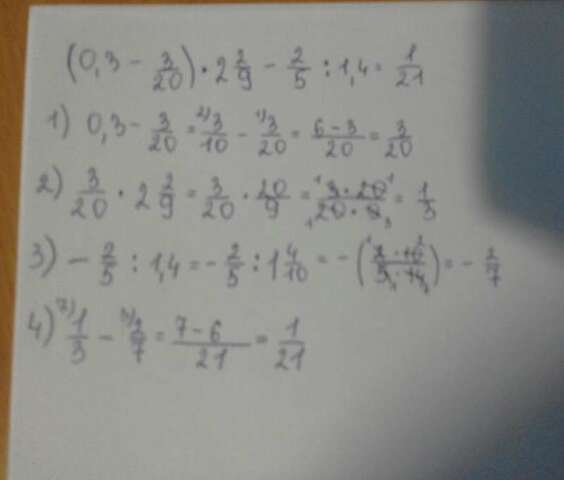 (0,3 - 3/20) · 2 2/9 - 2/5 : 1,4 = 1/21
1) 0,3 - 3/20 = ²⁾3/10 - ¹⁾3/20 = 6-3/20 = 3/20
2) 3/20 · 2 2/9 = 3/20 · 20/9 = 3·20/20·9 = 1/3
3) - 2/5 : 1,4 = - 2/5 : 1 4/10 = - (2·10/5·14) = - 2/7
4) ⁷⁾1/3 - ³⁾2/7 = 7-6/21 = 1/21